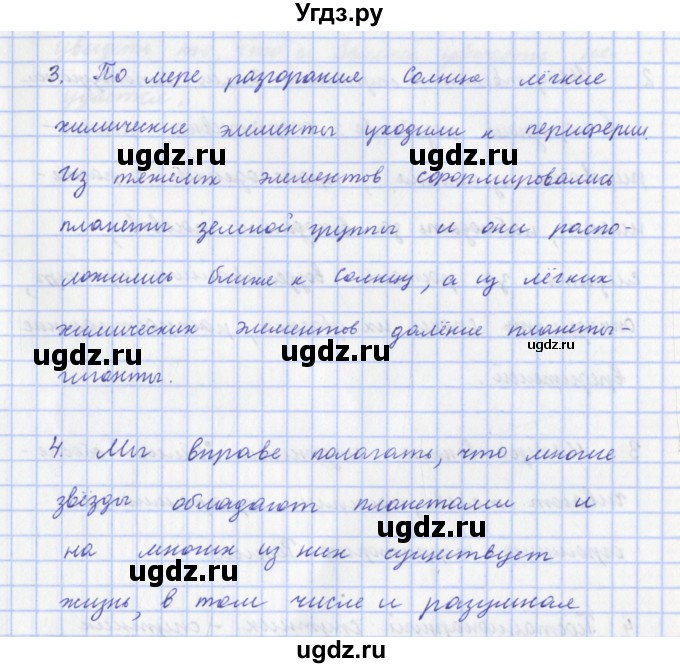 Угдз.ру
3. По мере разгорания Солнца лёгкие
химические элементы уходили к периферии.
ugdz.ru ugdz.ru
Из тяжёлых элементов сформировались
планеты земной группы и они распо-
ugdz.ru
ложились ближе к Солнцу, а из лёгких
химических элементов далёкие планеты-
ugdz.ru ugdz.ru ugdz.ru
гиганты.
4. Мы вправе полагать, что многие
звёзды обладают планетами и
ugdz.ru
на многих из них существует
ugdz.ru
жизнь, в том числе и разумная
ugdz.ru ugdz.ru